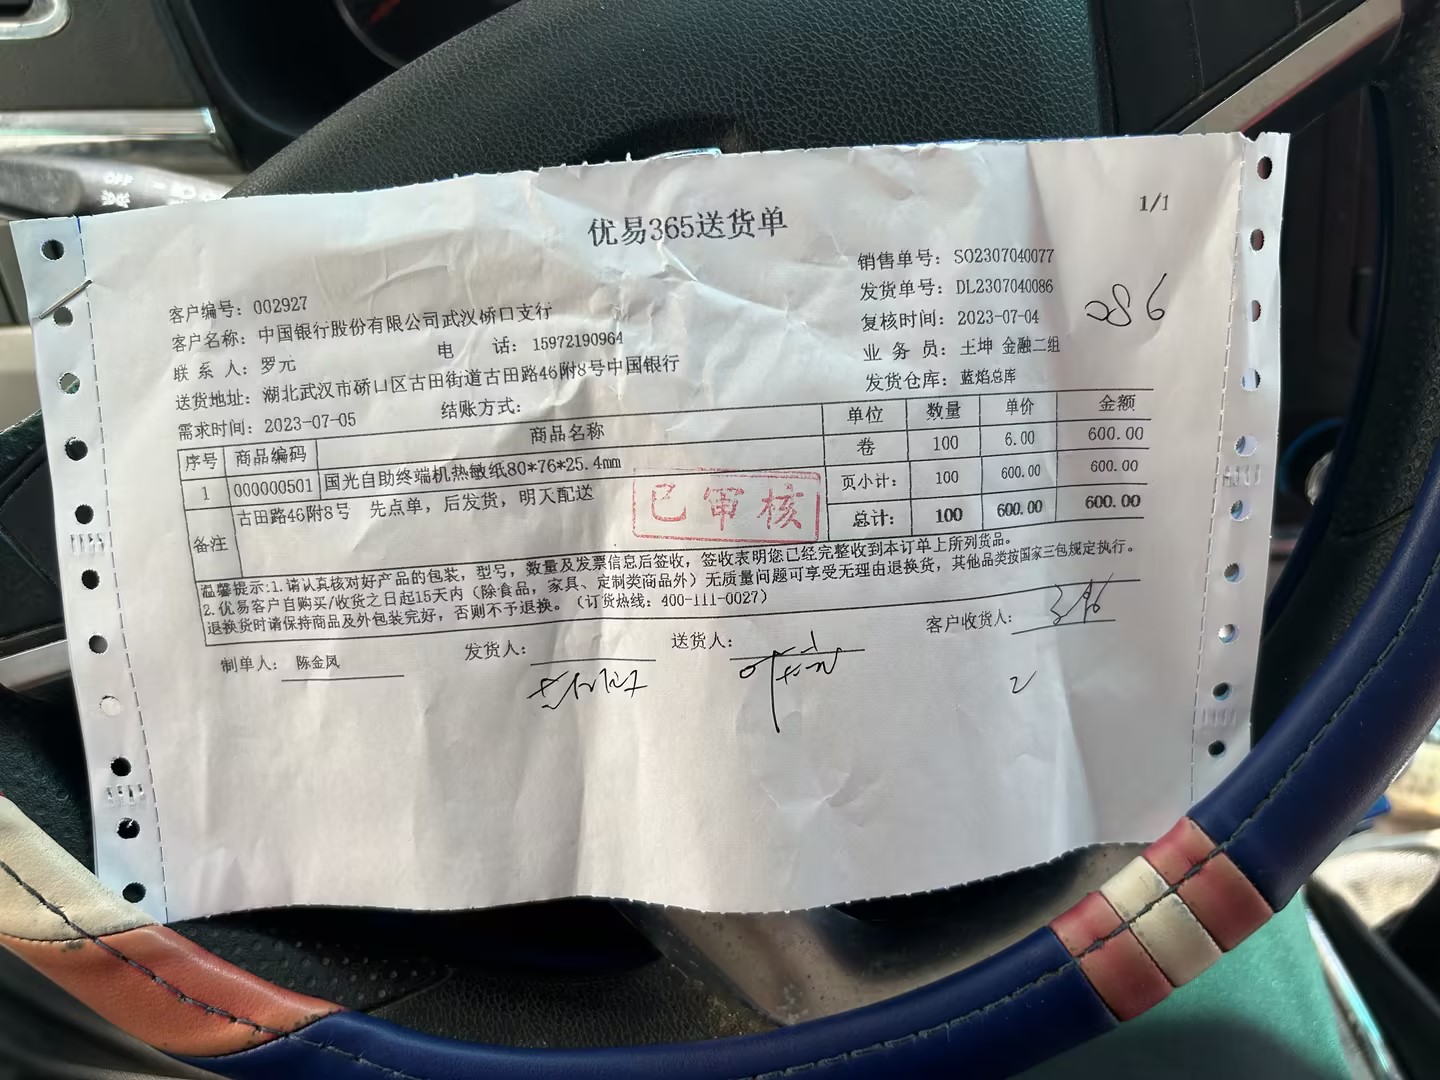 OFF
优易365送货单
1/1
客户编号：002927
销售单号：SO2307040077
客户名称：中国银行股份有限公司武汉硚口支行
发货单号：DL2307040086
086
联 系 人：罗元
电 话：15972190964
复核时间：2023-07-04
送货地址：湖北武汉市硚口区古田街道古田路46附8号中国银行
业 务 员：王坤 金融二组
需求时间：2023-07-05
结账方式：
发货仓库：蓝焰总库
序号 商品编码 商品名称 单位 数量 单价 金额
1 000000501 国光自助终端机热敏纸80*76*25.4mm 卷 100 6.00 600.00
备注 古田路46附8号 先点单，后发货，明天配送
页小计： 100 600.00 600.00
已审核
总计： 100 600.00 600.00
温馨提示:1.请认真核对好产品的包装，型号，数量及发票信息后签收，签收表明您已经完整收到本订单上所列货品。
2.优易客户自购买/收货之日起15天内（除食品，家具、定制类商品外）无质量问题可享受无理由退换货，其他品类按国家三包规定执行。
退换货时请保持商品及外包装完好，否则不予退换。（订货热线：400-111-0027）
制单人：陈金凤
发货人：
送货人：
客户收货人：